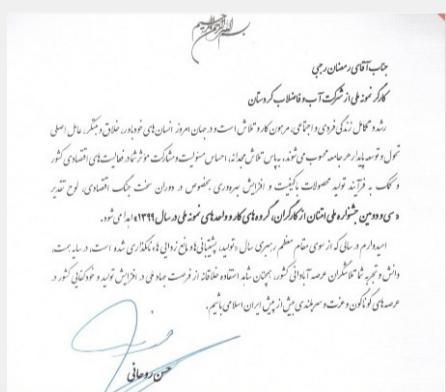 بسم الله الرحمن الرحیم
جناب آقای رمضان رجبی
کارگر نمونه ملی از شرکت آب و فاضلاب کردستان
رشد و تکامل زندگی فردی و اجتماعی، مرهون کار و تلاش است و در جهان امروز انسان‌های خودباور، خلاق و مبتکر، عامل اصلی
تحول و توسعه پایدار هر جامعه محسوب می‌شوند. به پاس تلاش مجدانه، احساس مسئولیت و مشارکت مؤثر شما در فعالیت‌های اقتصادی کشور
و کمک به فرآیند تولید محصولات باکیفیت و افزایش بهره‌وری بخصوص در دوران سخت جنگ اقتصادی، لوح تقدیر
«سی و دومین جشنواره ملی امتنان از کارگران، گروه‌های کار و واحدهای نمونه ملی در سال ۱۳۹۹» اهدا می‌شود.
امیدوارم در سالی که از سوی مقام معظم رهبری سال «تولید، پشتیبانی‌ها و مانع زدایی‌ها» نامگذاری شده است، در سایه همت،
دانش و تجربه شما تلاشگران عرصه آبادانی کشور، همچنان شاهد استفاده خلاقانه از فرصت جهاد ملی در افزایش تولید و خودکفایی کشور در
عرصه‌های گوناگون و عزت و سربلندی بیش از پیش ایران اسلامی باشیم.
حسن روحانی